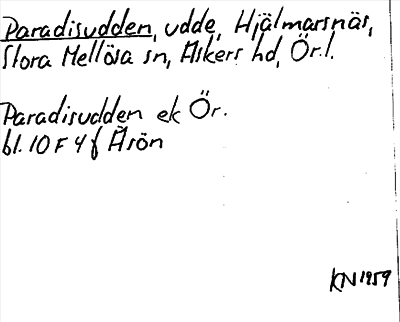 Paradisudden, udde, Hjälmarsnäs,
Stora Mellösa sn, Askers hd, Ör.l.
Paradisudden ek Ör.
bl. 10 F 4 f Äsön
KN 1959